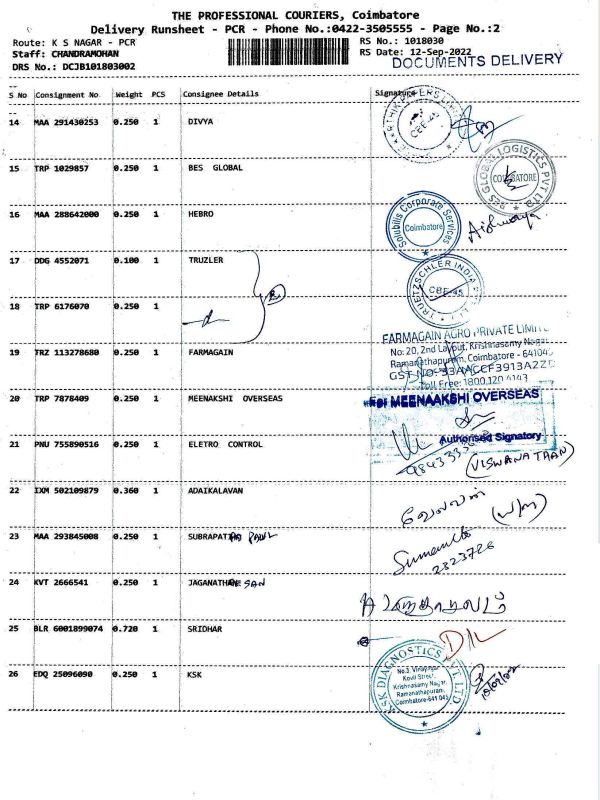 THE PROFESSIONAL COURIERS, Coimbatore
Delivery Runsheet - PCR - Phone No.:0422-3505555 - Page No.:2
Route: K S NAGAR - PCR
RS No.: 1018030
Staff: CHANDRAMOHAN
RS Date: 12-Sep-2022
DRS No.: DCJB101803002
DOCUMENTS DELIVERY
S No Consignment No. Weight PCS Consignee Details Signature
14 MAA 291430253 0.250 1 DIVYA
CBE-45
15 TRP 1029857 0.250 1 BES GLOBAL
BES GLOBAL LOGISTICS PVT LTD
COIMBATORE
16 MAA 288642000 0.250 1 HEBRO
Solubilis Corporate Services
Coimbatore
Aishwarya
17 DDG 4552071 0.100 1 TRUZLER
TRUETZSCHLER INDIA PVT. LTD.
CBE-45
18 TRP 6176070 0.250 1
19 TRZ 113278680 0.250 1 FARMAGAIN
FARMAGAIN AGRO PRIVATE LIMITE
No: 20, 2nd Layout, Krishnasamy Nagar
Ramanathapuram, Coimbatore - 641045
GST NO- 33AACCF3913A2ZD
Toll Free: 1800 120 4143
20 TRP 7878409 0.250 1 MEENAKSHI OVERSEAS
For MEENAAKSHI OVERSEAS
Authorised Signatory
21 PNU 755890516 0.250 1 ELETRO CONTROL
(VISWANATHAN)
22 IXM 502109879 0.360 1 ADAIKALAVAN
வேலவன்
(W/M)
23 MAA 293845008 0.250 1 SUBRAPAT
2323726
24 KVT 2666541 0.250 1 JAGANATHAESAN
25 BLR 6001899074 0.720 1 SRIDHAR
D/L
26 EDQ 25096090 0.250 1 KSK
KSK DIAGNOSTICS PVT. LTD.
No.3, Vinayagar
Kovil Street,
Krishnasamy Nagar,
Ramanathapuram,
Coimbatore-641 045